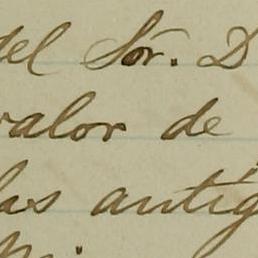 del Sor. D
valor de
las antig